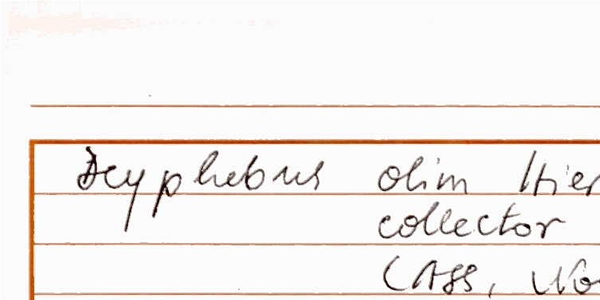 Scyphebus olim Hier
collector
(ASS, No